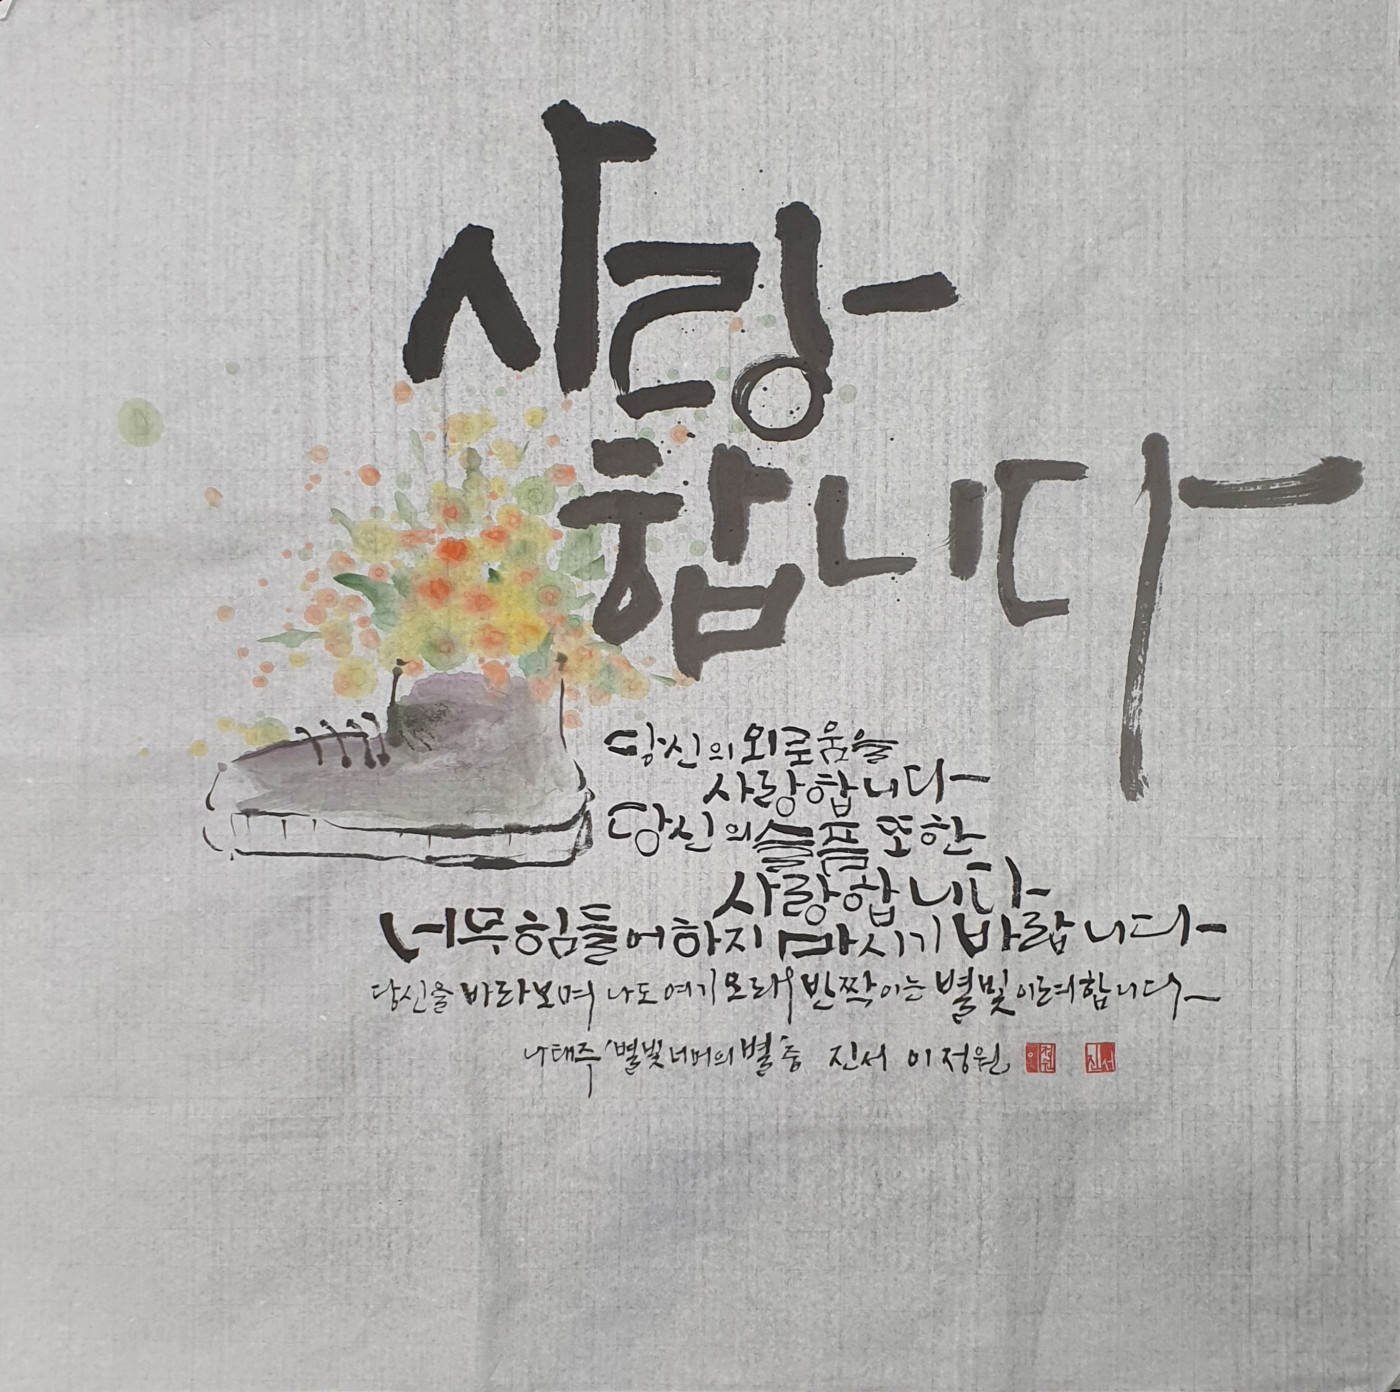 사랑
합니다
당신의 외로움을
사랑합니다
당신의 슬픔 또한
사랑합니다
너무 힘들어 하지 마시기 바랍니다
당신을 바라보며 나도 여기 모래위 반짝이는 별빛이려 합니다
나태주 '별빛 너머의 별' 중 진서 이정원
정원 진서